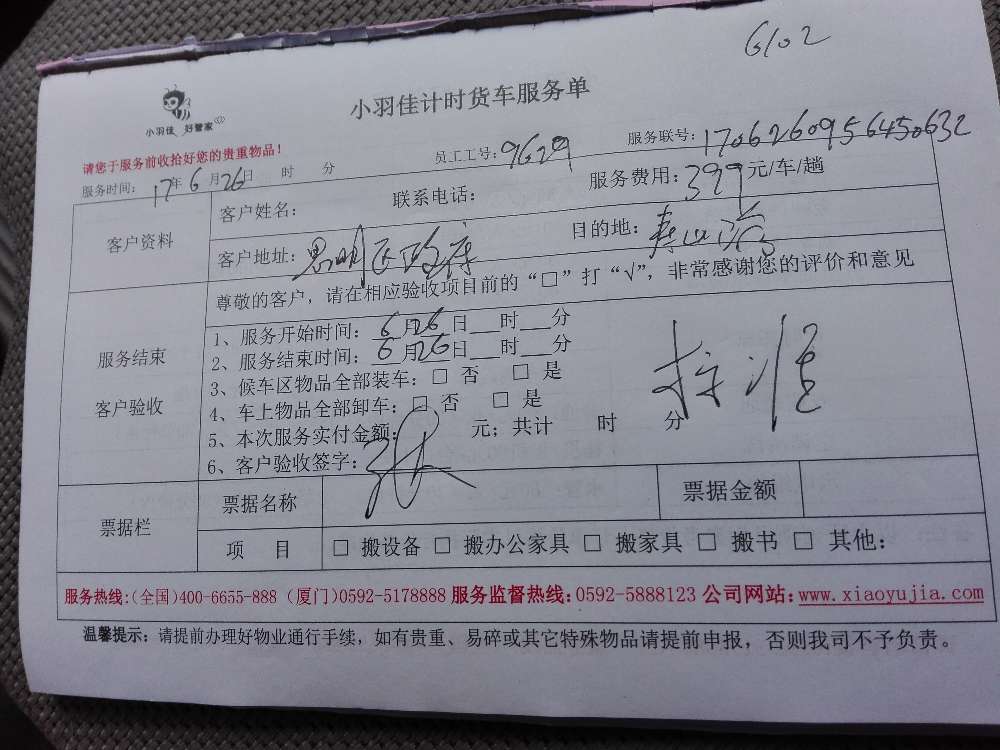 6102
小羽佳 好管家
小羽佳计时货车服务单
请您于服务前收拾好您的贵重物品！
员工工号：9629
服务联号：1706260956450632
服务时间：17年6月26日 时 分
客户资料
客户姓名： 联系电话： 服务费用：399元/车/趟
客户地址：思明区政府 目的地：
尊敬的客户，请在相应验收项目前的“□”打“√”，非常感谢您的评价和意见
服务结束
客户验收
1、服务开始时间：6月26日__时__分
2、服务结束时间：6月26日__时__分
3、候车区物品全部装车：□ 否 □ 是
4、车上物品全部卸车：□ 否 □ 是
5、本次服务实付金额： 元；共计 时 分
6、客户验收签字：
票据栏
票据名称 票据金额
项 目 □ 搬设备 □ 搬办公家具 □ 搬家具 □ 搬书 □ 其他：
服务热线:(全国)400-6655-888 (厦门)0592-5178888 服务监督热线:0592-5888123 公司网站:www.xiaoyujia.com
温馨提示：请提前办理好物业通行手续，如有贵重、易碎或其它特殊物品请提前申报，否则我司不予负责。